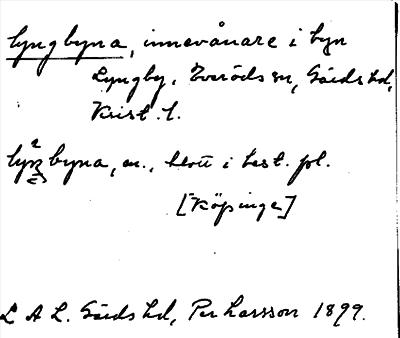 lyngbyna, innevånare i byn
Lyngby, Everöds sn, Gärds hd,
Krist. l.
byna, m., blott i best. pl.
[Köpinge]
L A L. Gärds hd, Per Larsson 1899.